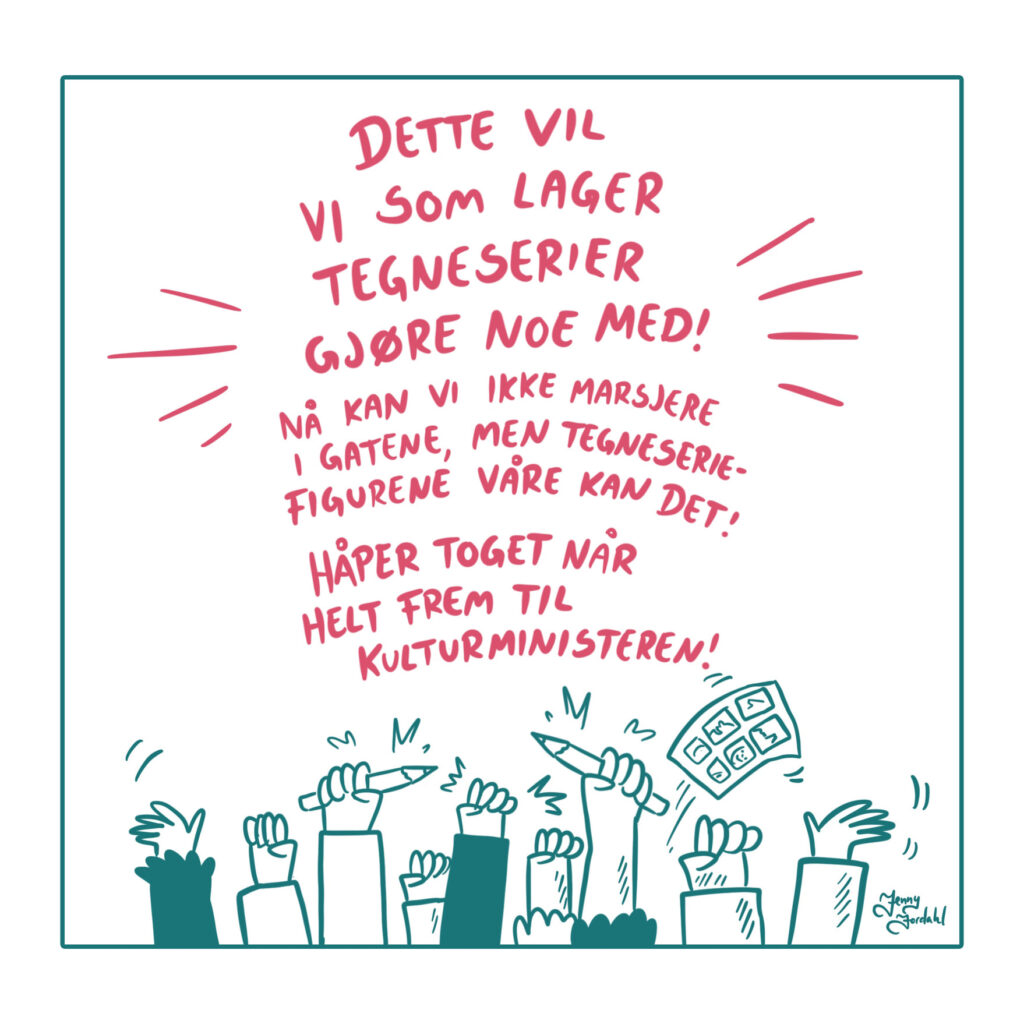 DETTE VIL
VI SOM LAGER
TEGNESERIER
GJØRE NOE MED!
NÅ KAN VI IKKE MARSJERE
I GATENE, MEN TEGNESERIE-
FIGURENE VÅRE KAN DET!
HÅPER TOGET NÅR
HELT FREM TIL
KULTURMINISTEREN!
Jenny
Jordahl